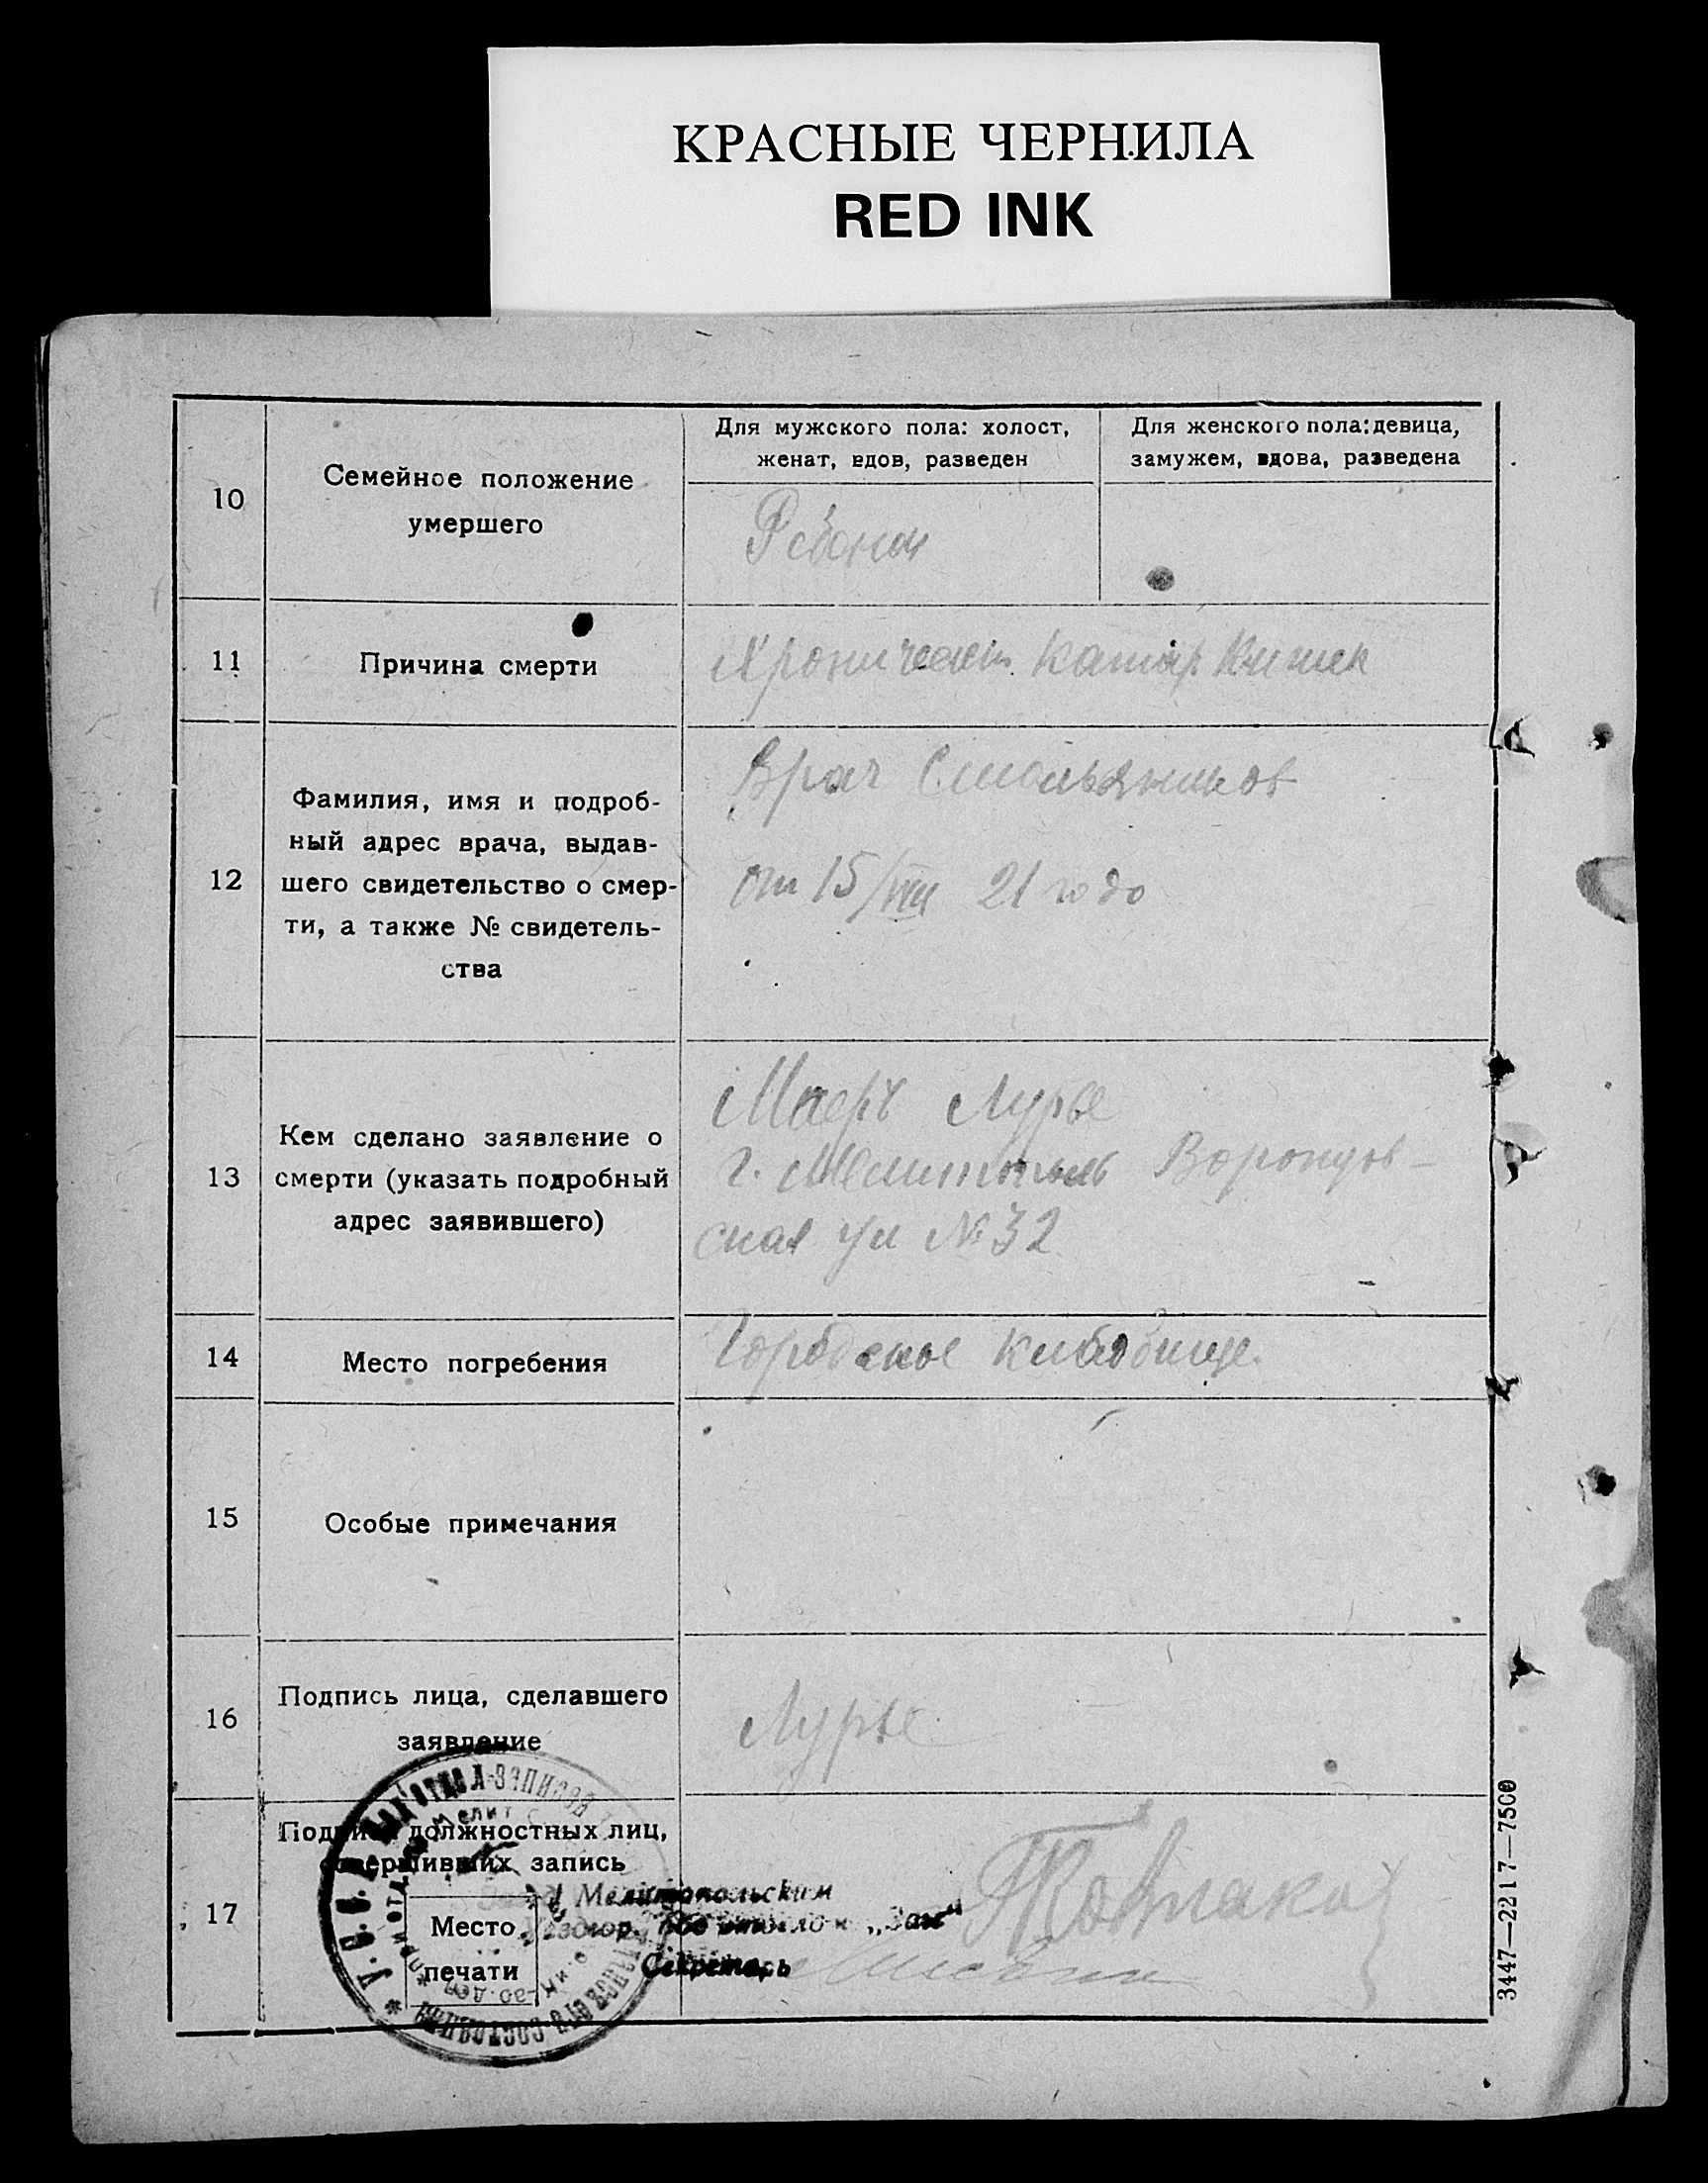 КРАСНЫЕ ЧЕРНИЛА
RED INK
10
Семейное положение
умершего
Для мужского пола: холост,
женат, вдов, разведен
Для женского пола: девица,
замужем, вдова, разведена
Ребенок
11
Причина смерти
Хронически катар кишек
12
Фамилия, имя и подроб-
ный адрес врача, выдав-
шего свидетельство о смер-
ти, а также № свидетель-
ства
Врач
от 15/VIII 21 года
13
Кем сделано заявление о
смерти (указать подробный
адрес заявившего)
Маеръ Лурье
г. Мелитополь Воронцов-
ская ул № 32
14
Место погребения
Городское кладбище.
15
Особые примечания
16
Подпись лица, сделавшего
заявление
Лурье
17
Подписи должностных лиц,
совершивших запись
Место
печати
Мелитопольским
„Заг"
Секретарь
3447—2217—7500